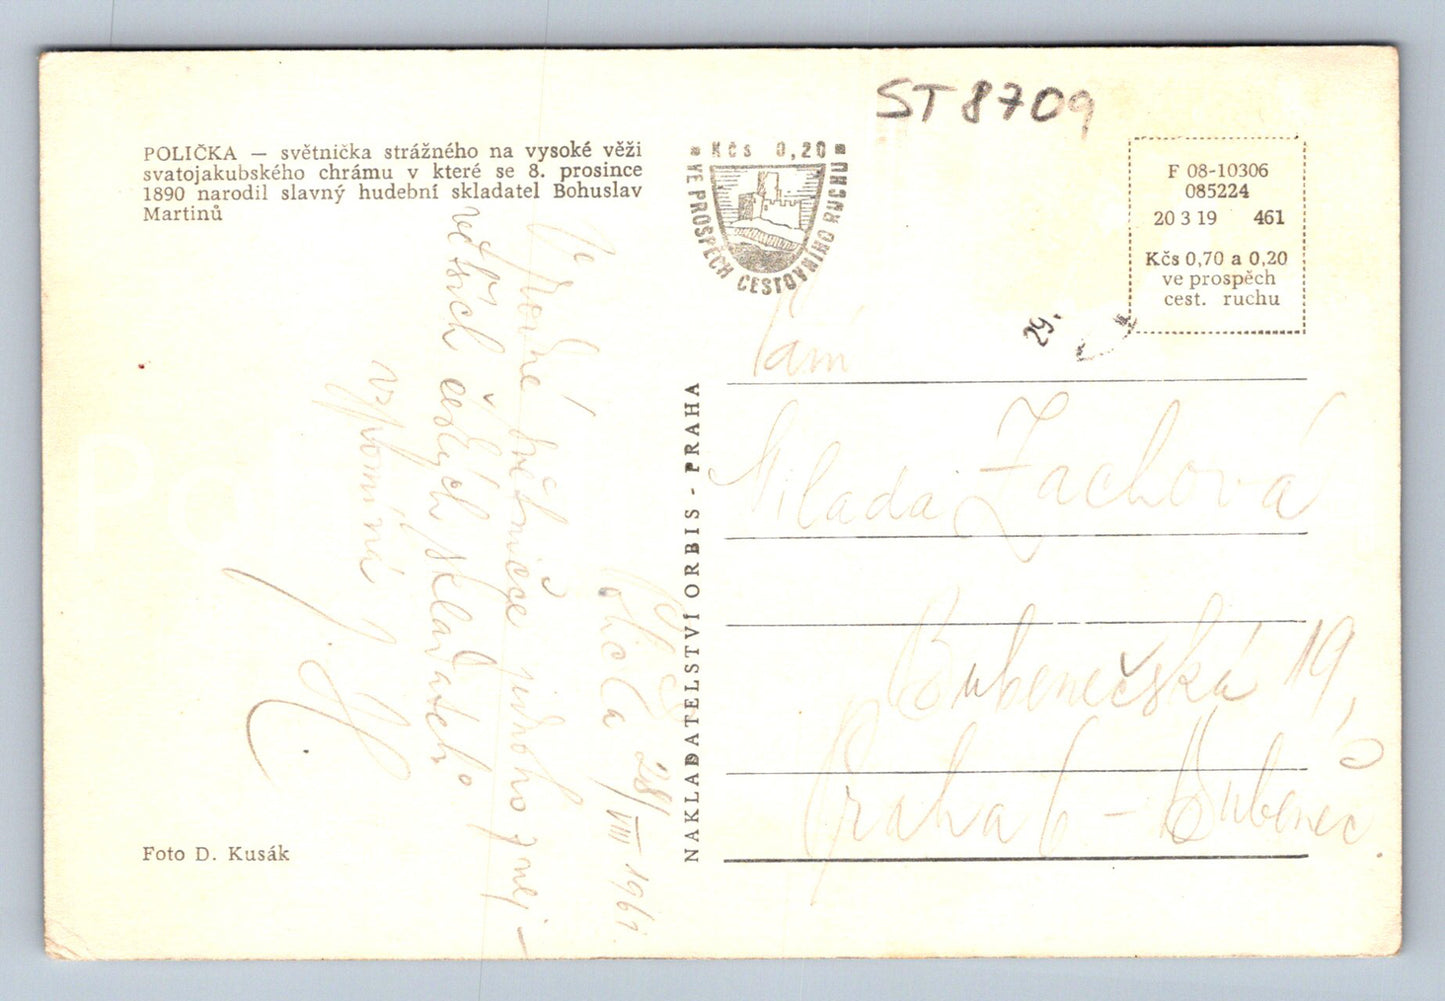 ST 8709
POLIČKA — světnička strážného na vysoké věži
svatojakubského chrámu v které se 8. prosince
1890 narodil slavný hudební skladatel Bohuslav
Martinů
Kčs 0,20
VE PROSPĚCH CESTOVNÍHO RUCHU
F 08-10306
085224
20 3 19 461
Kčs 0,70 a 0,20
ve prospěch
cest. ruchu
29.
V rodné světničce jednoho z nej-
větších českých skladatelů
vzpomíná
Polička 28/VIII 1961
NAKLADATELSTVÍ ORBIS - PRAHA
Paní
Milada Zachová
Bubenečská 19,
Praha 6 - Bubeneč.
Foto D. Kusák